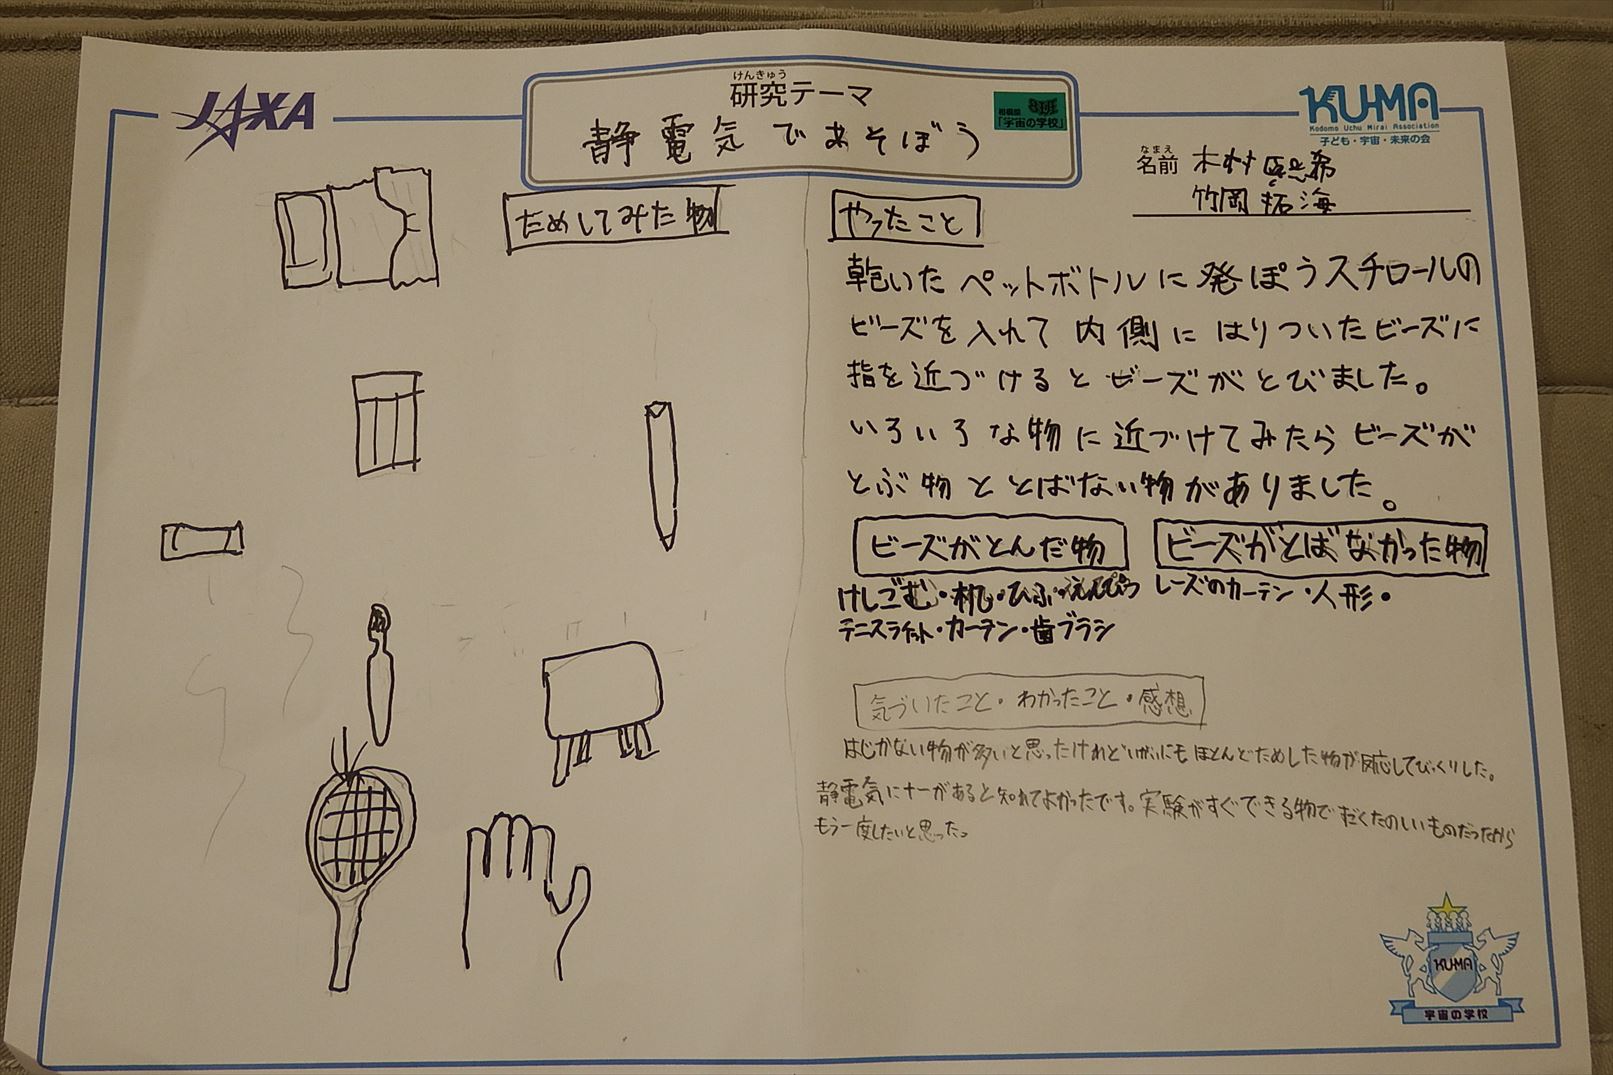 JAXA
けんきゅう
研究テーマ
静電気であそぼう
相模原
「宇宙の学校」
KU-MA
Kodomo Uchu Mirai Association
子ども・宇宙・未来の会
なまえ
名前 木村 希
竹岡 拓海
ためしてみた物
やったこと
乾いたペットボトルに発ぽうスチロールの
ビーズを入れて内側にはりついたビーズに
指を近づけるとビーズがとびました。
いろいろな物に近づけてみたらビーズが
とぶ物ととばない物がありました。
ビーズがとんだ物
けしごむ・机・ひふ・えんぴつ
テニスラケット・カーテン・歯ブラシ
ビーズがとばなかった物
レーズのカーテン・人形・
気づいたこと・わかったこと・感想
はじかない物が多いと思ったけれどいがいにもほとんどためした物が反応してびっくりした。
静電気に＋ーがあると知れてよかったです。実験がすぐできる物で たのしいものだったから
もう一度したいと思った。
KU-MA
宇宙の学校